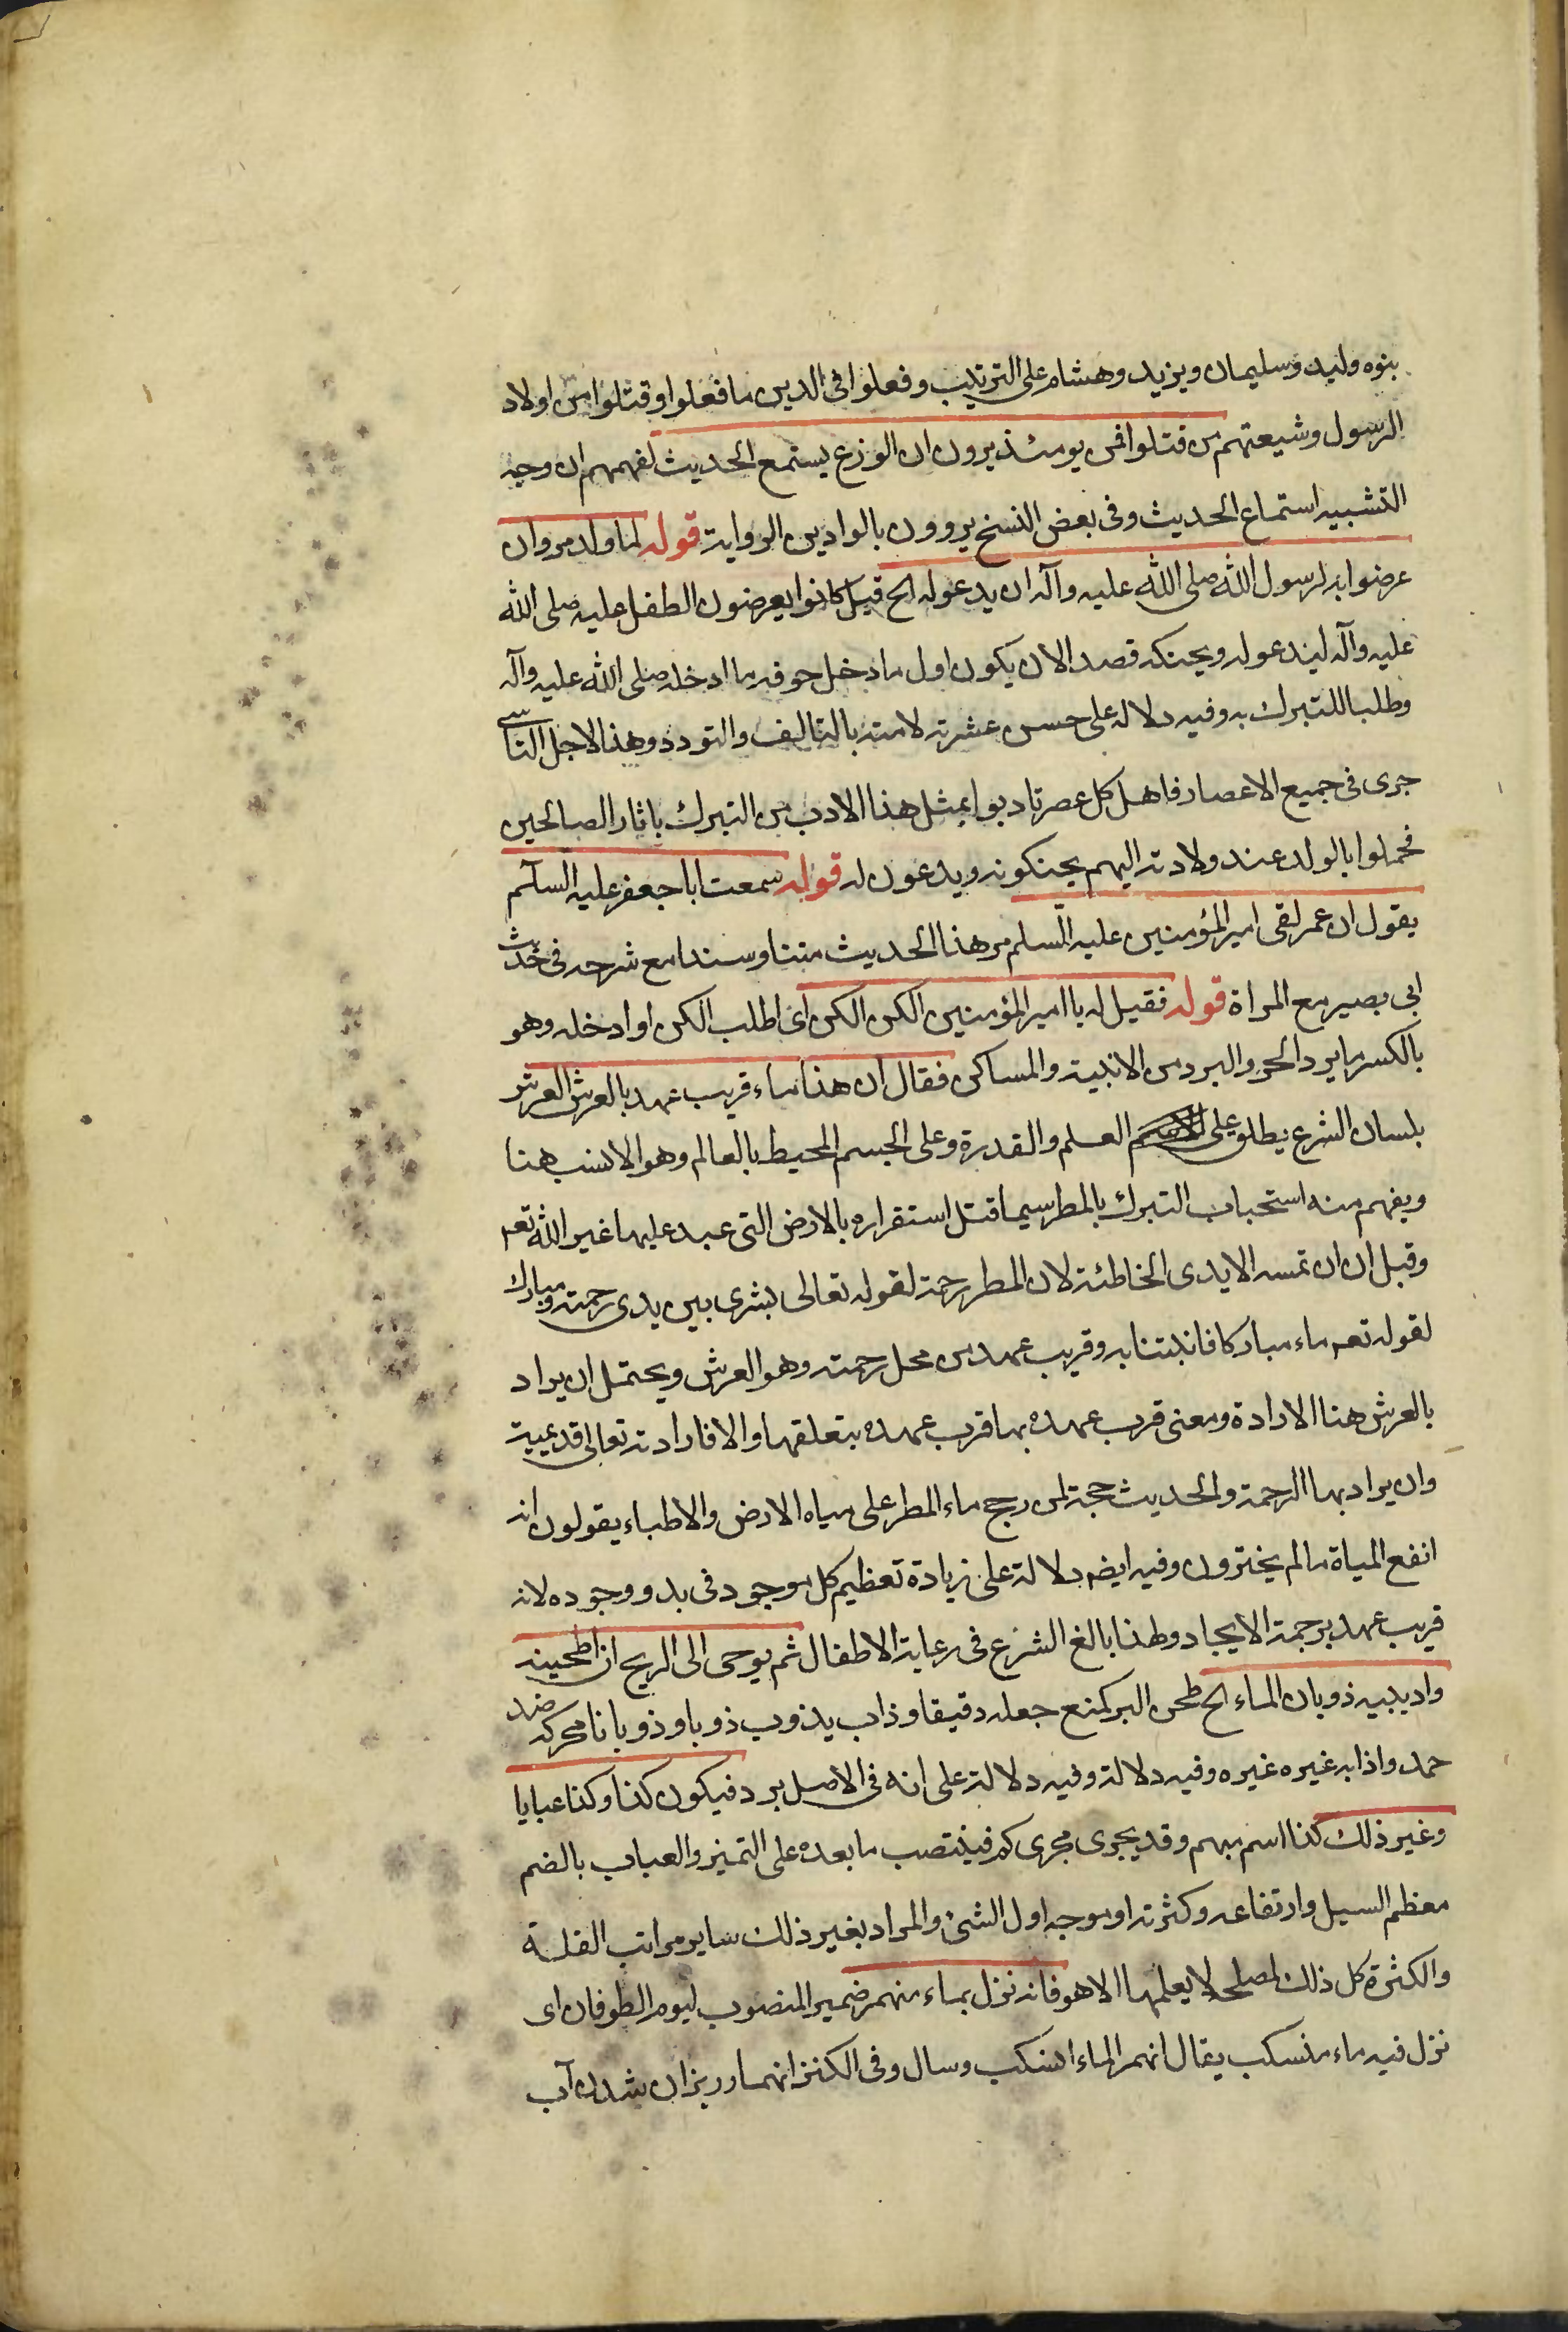 بنوه وليد وسليمان ويزيد وهشام على الترتيب وفعلوا فى الدين ما فعلوا وقتلوا من اولاد
الرسول وشيعتهم من قتلوا فمن يومئذ يرون ان الوزغ يستمع الحديث لفهمهم ان وجه
التشبيه استماع الحديث وفى بعض النسخ يروون بالوادين الرواية قوله لما ولد مروان
عرضوا به لرسول الله صلى الله عليه وآله ان يدعو له الخ قيل كانوا يعرضون الطفل عليه صلى الله
عليه وآله ليدعو له ويحنكه قصدا لان يكون اول ما دخل جوفه ما ادخله صلى الله عليه وآله
وطلبا للتبرك به وفيه دلالة على حسن عشرته لامته بالتالف والتودد وهذا لاجل التاسى
جرى فى جميع الاعصار فاهل كل عصر تادبوا بمثل هذا الادب من التبرك باثار الصالحين
فحملوا بالولد عند ولادته اليهم يحنكونه ويدعون له قوله سمعت ابا جعفر عليه السلم
يقول ان عمر لقى امير المؤمنين عليه السلم مر هذا الحديث متنا وسندا مع شرحه فى حديث
ابى بصير مع المراة قوله فقيل له يا امير المؤمنين الكن الكن اى اطلب الكن او ادخله وهو
بالكسر ما يرد الحر والبرد من الابنية والمساكن فقال ان هذا ماء قريب عهد بالعرش العرش
بلسان الشرع يطلق على العلم والقدرة وعلى الجسم المحيط بالعالم وهو الانسب هنا
ويفهم منه استحباب التبرك بالمطر سيما قبل استقراره بالارض التى عبد عليها غير الله تعه
وقبل ان ان تمسه الايدى الخاطئة لان المطر رحمة لقوله تعالى بشرى بين يدى رحمته ومبارك
لقوله تعه ماء مباركا فانبتنا به وقريب عهد من محل رحمته وهو العرش ويحتمل ان يراد
بالعرش هنا الارادة ومعنى قرب عهده بها قرب عهده بتعلقها والا فارادته تعالى قديمية
وان يراد بها الرحمة والحديث حجة لمن رجح ماء المطر على مياه الارض والاطباء يقولون انه
انفع المياة ما لم يختزون وفيه ايضه دلالة على زيادة تعظيم كل موجود فى بدو وجوده لانه
قريب عهد برحمة الايجاد ولهذا بالغ الشرع فى رعاية الاطفال ثم يوحى الى الريح ان اطحينه
واديبيه ذوبان الماء الخ طحن البر كمنع جعله دقيقا وذاب يذوب ذوبا وذوبانا محركه ضد
جمد واذابه غيره غيره وفيه دلالة وفيه دلالة على انه فى الاصل برد فيكون كذا وكذا عبابا
وغير ذلك كذا اسم مبهم وقد يجرى مجرى كم فينتصب ما بعده على التميز والعباب بالضم
معظم السيل وارتفاعه وكثرته او موجه اول الشئ والمراد بغير ذلك ساير مراتب القلة
والكثرة كل ذلك لمصلحة لا يعلمها الا هو فانه نزل بماء منهمر ضمير المنصوب ليوم الطوفان اى
نزل فيه ماء منسكب يقال انهمر الماء انسكب وسال وفى الكنز انهمار ريزان شدن آب